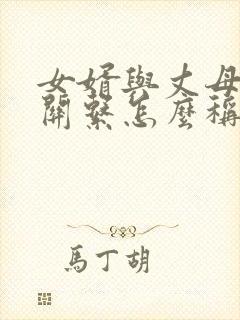 女婿與丈母
關繫怎麼稱
馬丁胡